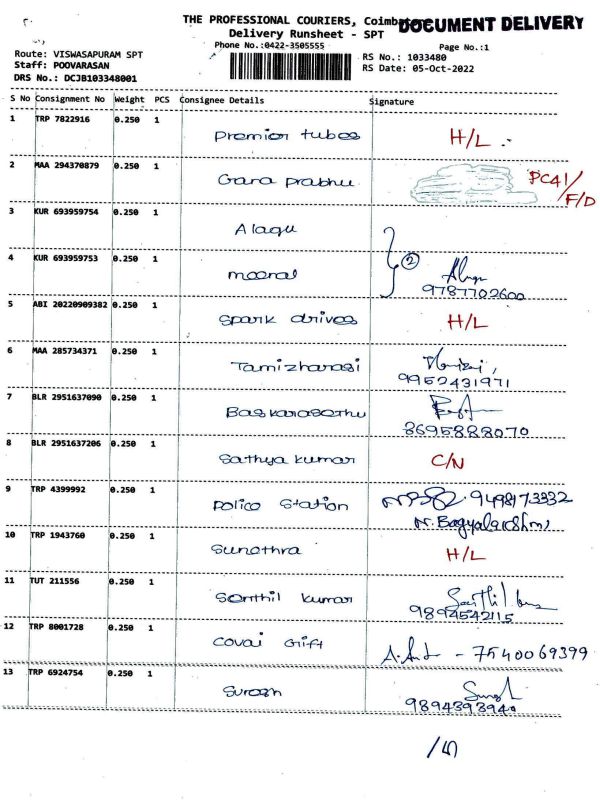 THE PROFESSIONAL COURIERS, Coimbatore
DOCUMENT DELIVERY
Delivery Runsheet - SPT
Phone No.:0422-3505555
Page No.:1
Route: VISWASAPURAM SPT
RS No.: 1033480
Staff: POOVARASAN
RS Date: 05-Oct-2022
DRS No.: DCJB103348001
S No Consignment No Weight PCS Consignee Details Signature
1 TRP 7822916 0.250 1 Premier tubes H/L
2 MAA 294370879 0.250 1 Gana prabhu PC41/F/D
3 KUR 693959754 0.250 1 Alagu
4 KUR 693959753 0.250 1 meenal 2
9787702600
5 ABI 20220909382 0.250 1 Spark drives H/L
6 MAA 285734371 0.250 1 Tamizharasi
9952431971
7 BLR 2951637090 0.250 1 Baskarasethu
3695888070
8 BLR 2951637206 0.250 1 Sathya kumar C/N
9 TRP 4399992 0.250 1 police station 9498173332
N. Bagyalakshmi
10 TRP 1943760 0.250 1 Sunethra H/L
11 TUT 211556 0.250 1 Senthil kumar
9894542115
12 TRP 8001728 0.250 1 covai Gift - 7540069399
13 TRP 6924754 0.250 1 Suresh
9894393940